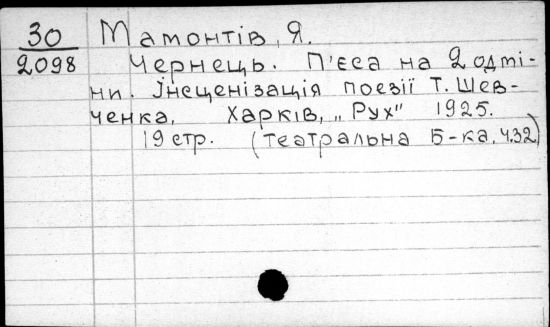 30 Мамонтів, Я.
2098 Чернець. П'єса на 2 одмі-
ни. Інсценізація поезії Т. Шев-
ченка. Харків, „Рух" 1925.
19 стр. (Театральна Б-ка, ч.32)